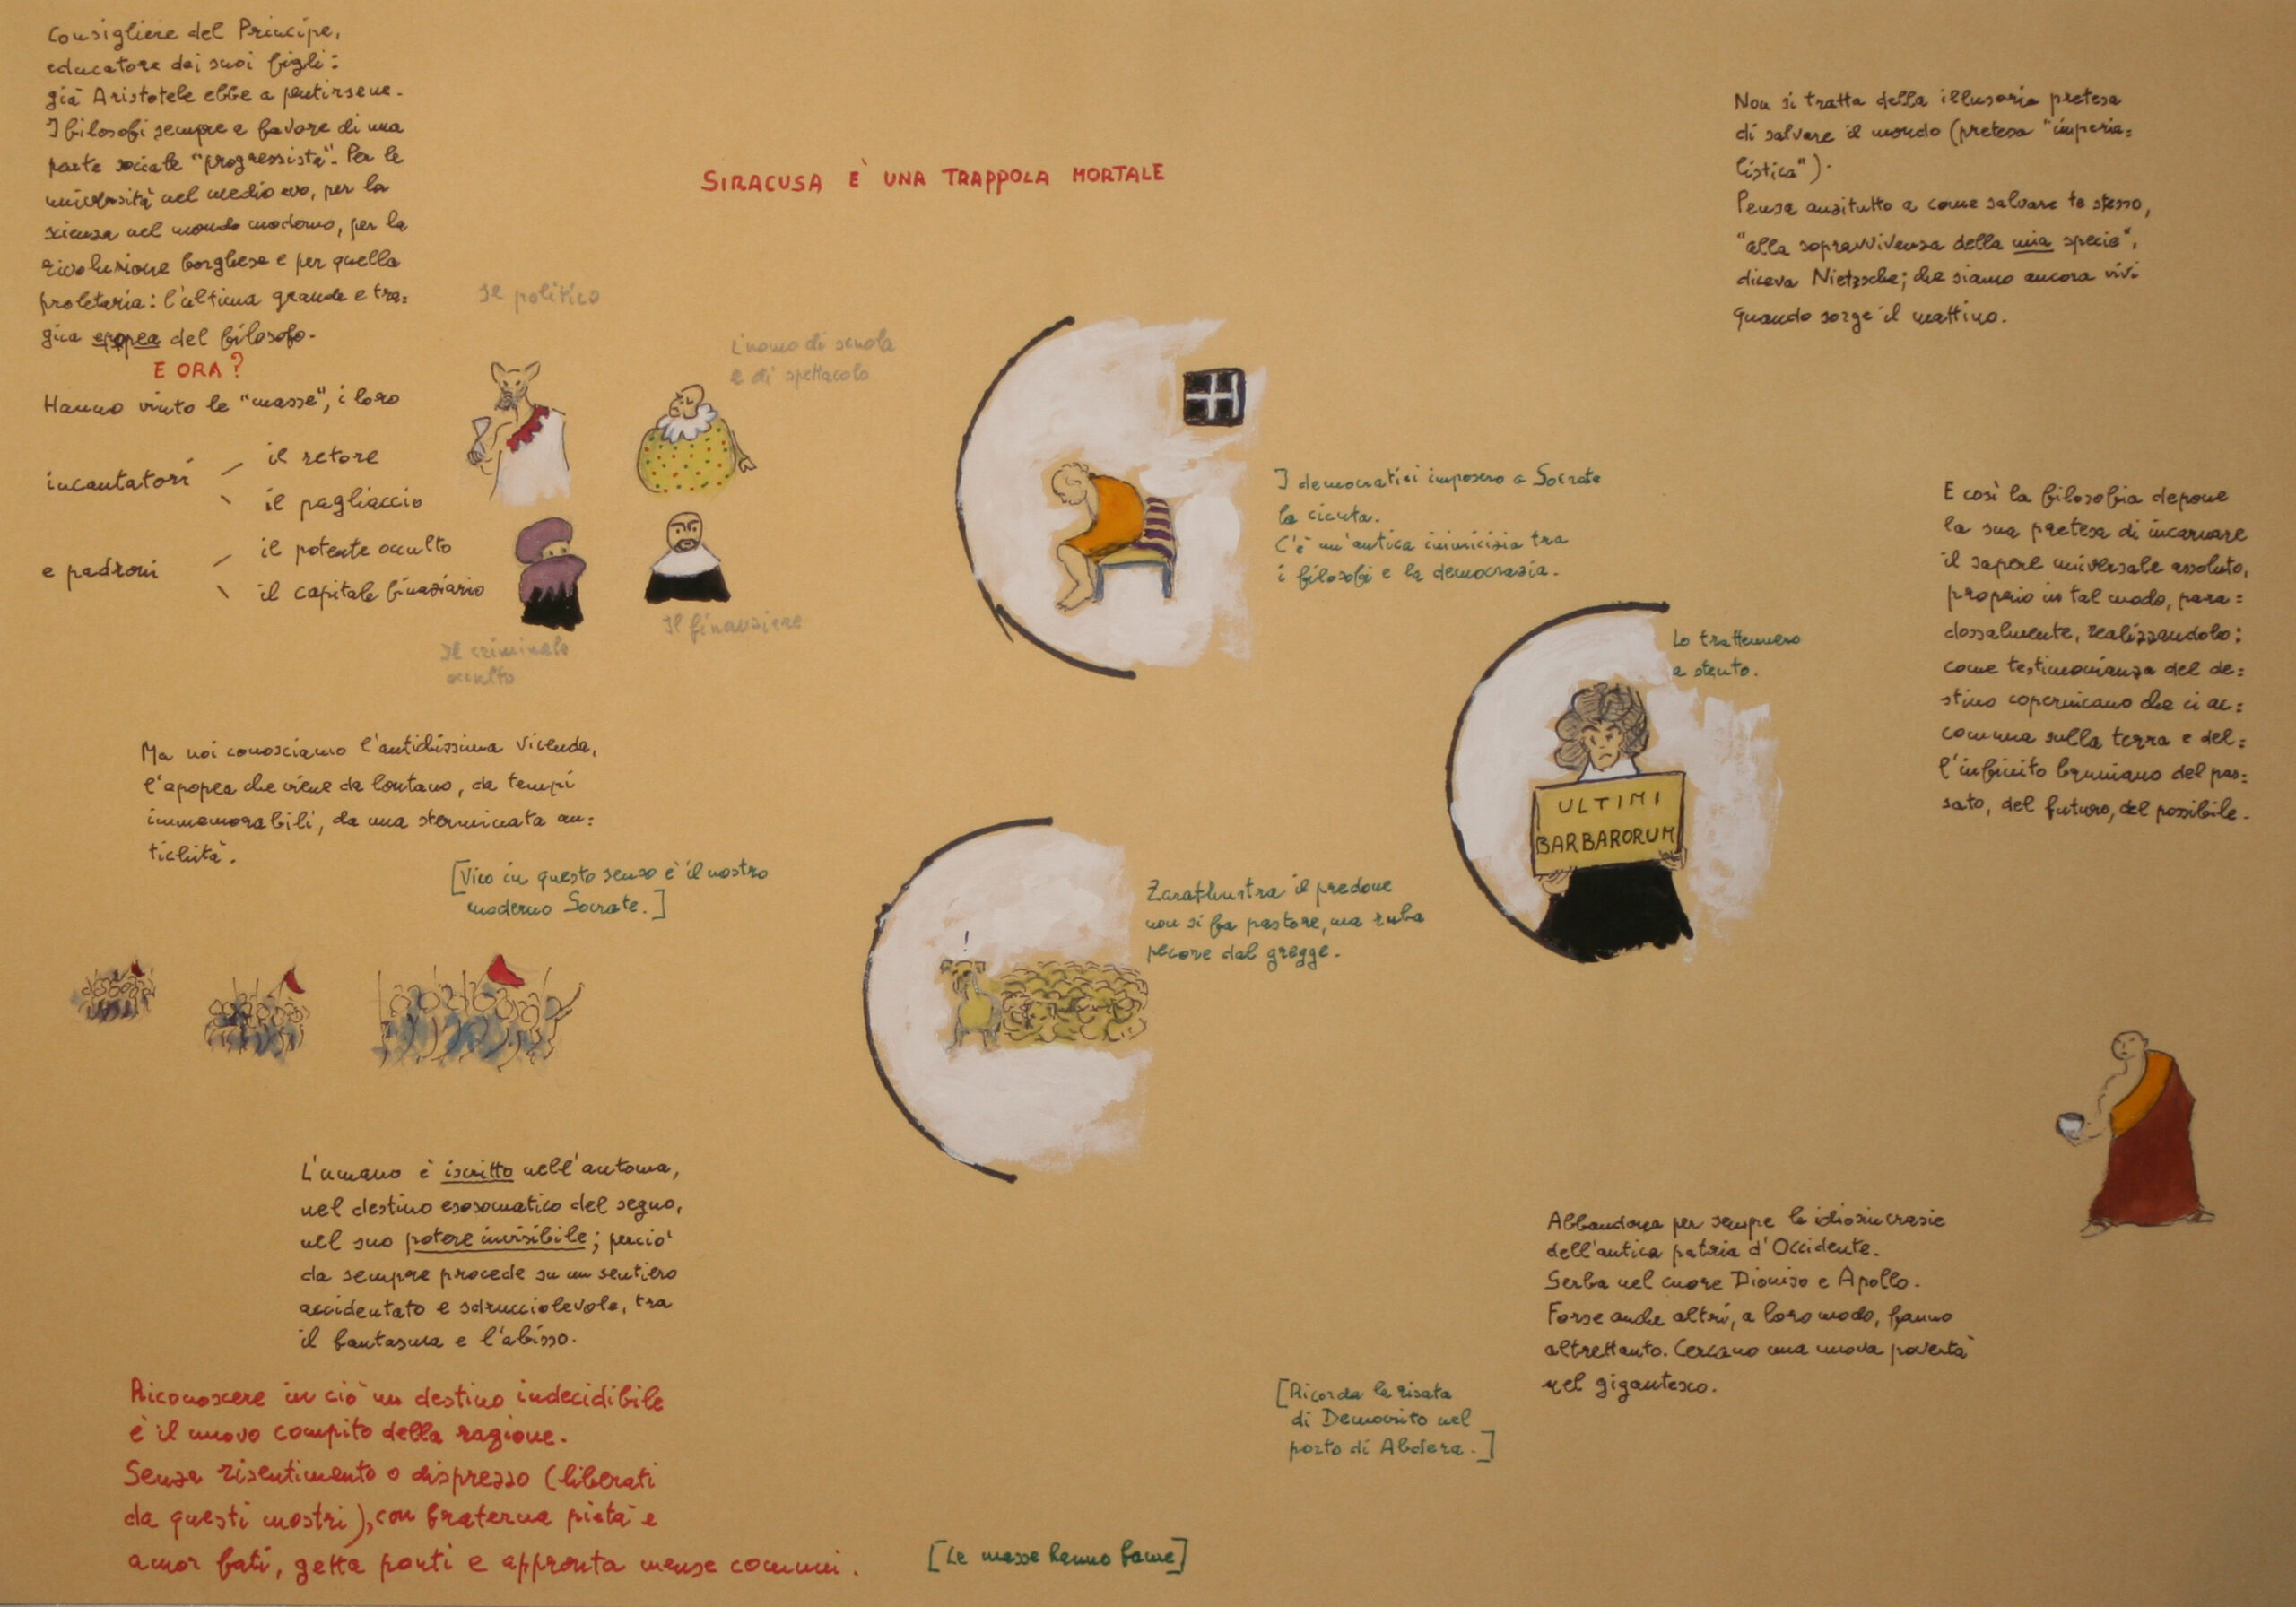 Consigliere del Principe,
educatore dei suoi figli:
già Aristotele ebbe a pentirsene.
I filosofi sempre a favore di una
parte sociale "progressista". Per le
università nel medio evo, per la
scienza nel mondo moderno, per la
rivoluzione borghese e per quella
proletaria: l'ultima grande e tra=
gica epopea del filosofo.
E ORA?
Hanno vinto le "masse", i loro
incantatori
il retore
il pagliaccio
e padroni
il potente occulto
il capitale finaziario
Il politico
L'uomo di scuola
e di spettacolo
Il criminale
occulto
Il finanziere
SIRACUSA È UNA TRAPPOLA MORTALE
Non si tratta della illusoria pretesa
di salvare il mondo (pretesa "imperia=
listica").
Pensa anzitutto a come salvare te stesso,
"alla sopravvivenza della mia specie",
diceva Nietzsche; che siamo ancora vivi
quando sorge il mattino.
I democratici imposero a Socrate
la cicuta.
C'è un'antica inimicizia tra
i filosofi e la democrazia.
E così la filosofia depone
la sua pretesa di incarnare
il sapere universale assoluto,
proprio in tal modo, para=
dossalmente, realizzandolo:
come testimonianza del de=
stino copernicano che ci ac=
comuna sulla terra e del=
l'infinito bruniano del pas=
sato, del futuro, del possibile.
Lo trattennero
a stento.
ULTIMI
BARBARORUM
Ma noi conosciamo l'antichissima vicenda,
l'apopea che viene da lontano, da tempi
immemorabili, da una sterminata an=
tichità.
[Vico in questo senso è il nostro
moderno Socrate.]
!
Zarathustra il predone
non si fa pastore, ma ruba
pecore dal gregge.
L'umano è iscritto nell'automa,
nel destino esosomatico del segno,
nel suo potere invisibile; perciò
da sempre procede su un sentiero
accidentato e sdrucciolevole, tra
il fantasma e l'abisso.
Riconoscere in ciò un destino indecidibile
è il nuovo compito della ragione.
Senza risentimento o disprezzo (liberati
da questi mostri), con fraterna pietà e
amor fati, getta ponti e appronta mense comuni.
[Le masse hanno fame]
Abbandona per sempre le idiosincrasie
dell'antica patria d'Occidente.
Serba nel cuore Dioniso e Apollo.
Forse anche altri, a loro modo, fanno
altrettanto. Cercano una nuova povertà
nel gigantesco.
[Ricorda la risata
di Democrito nel
porto di Abdera.]